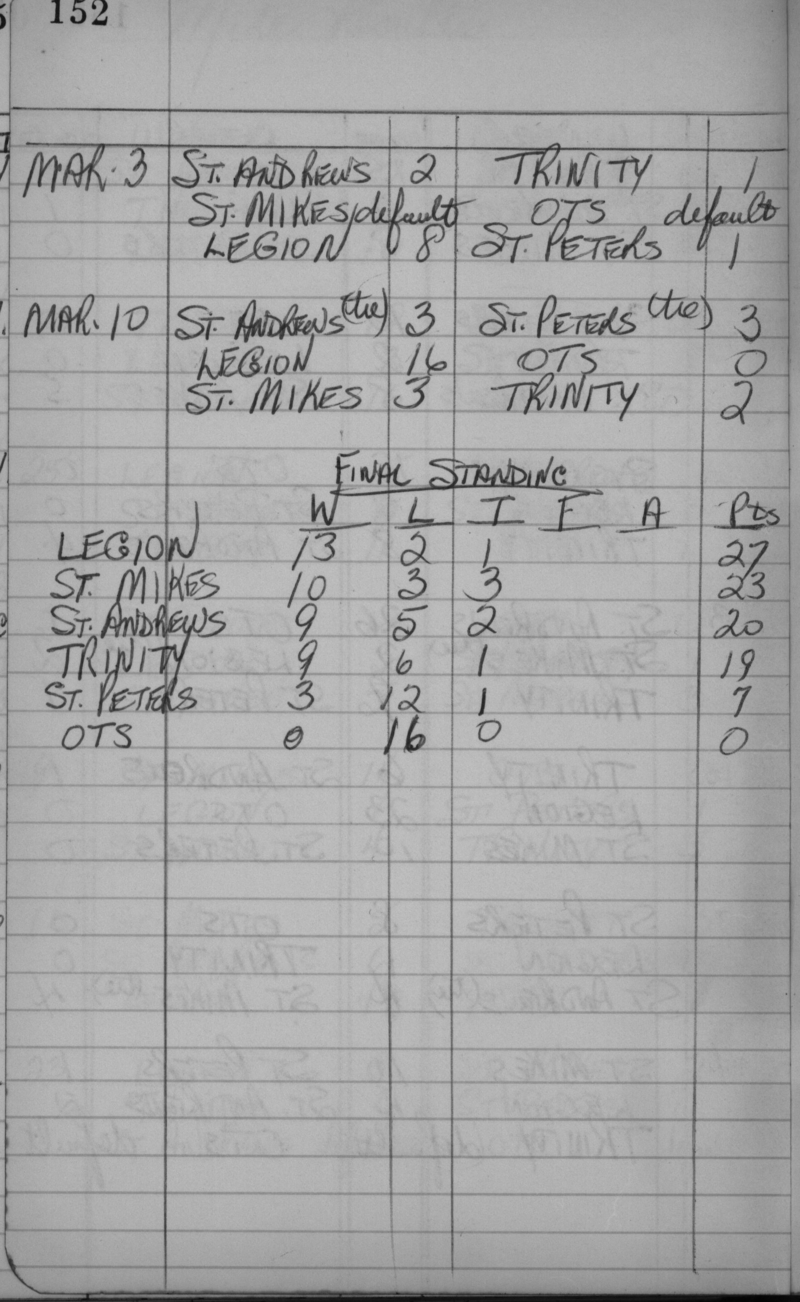 152
MAR. 3 ST. ANDREWS 2 TRINITY 1
ST. MIKES default OTS default
LEGION 8 ST. PETERS 1
MAR. 10 ST. ANDREWS (tie) 3 ST. PETERS (tie) 3
LEGION 16 OTS 0
ST. MIKES 3 TRINITY 2
FINAL STANDING
W L T F A Pts
LEGION 13 2 1 27
ST. MIKES 10 3 3 23
ST. ANDREWS 9 5 2 20
TRINITY 9 6 1 19
ST. PETERS 3 12 1 7
OTS 0 16 0 0